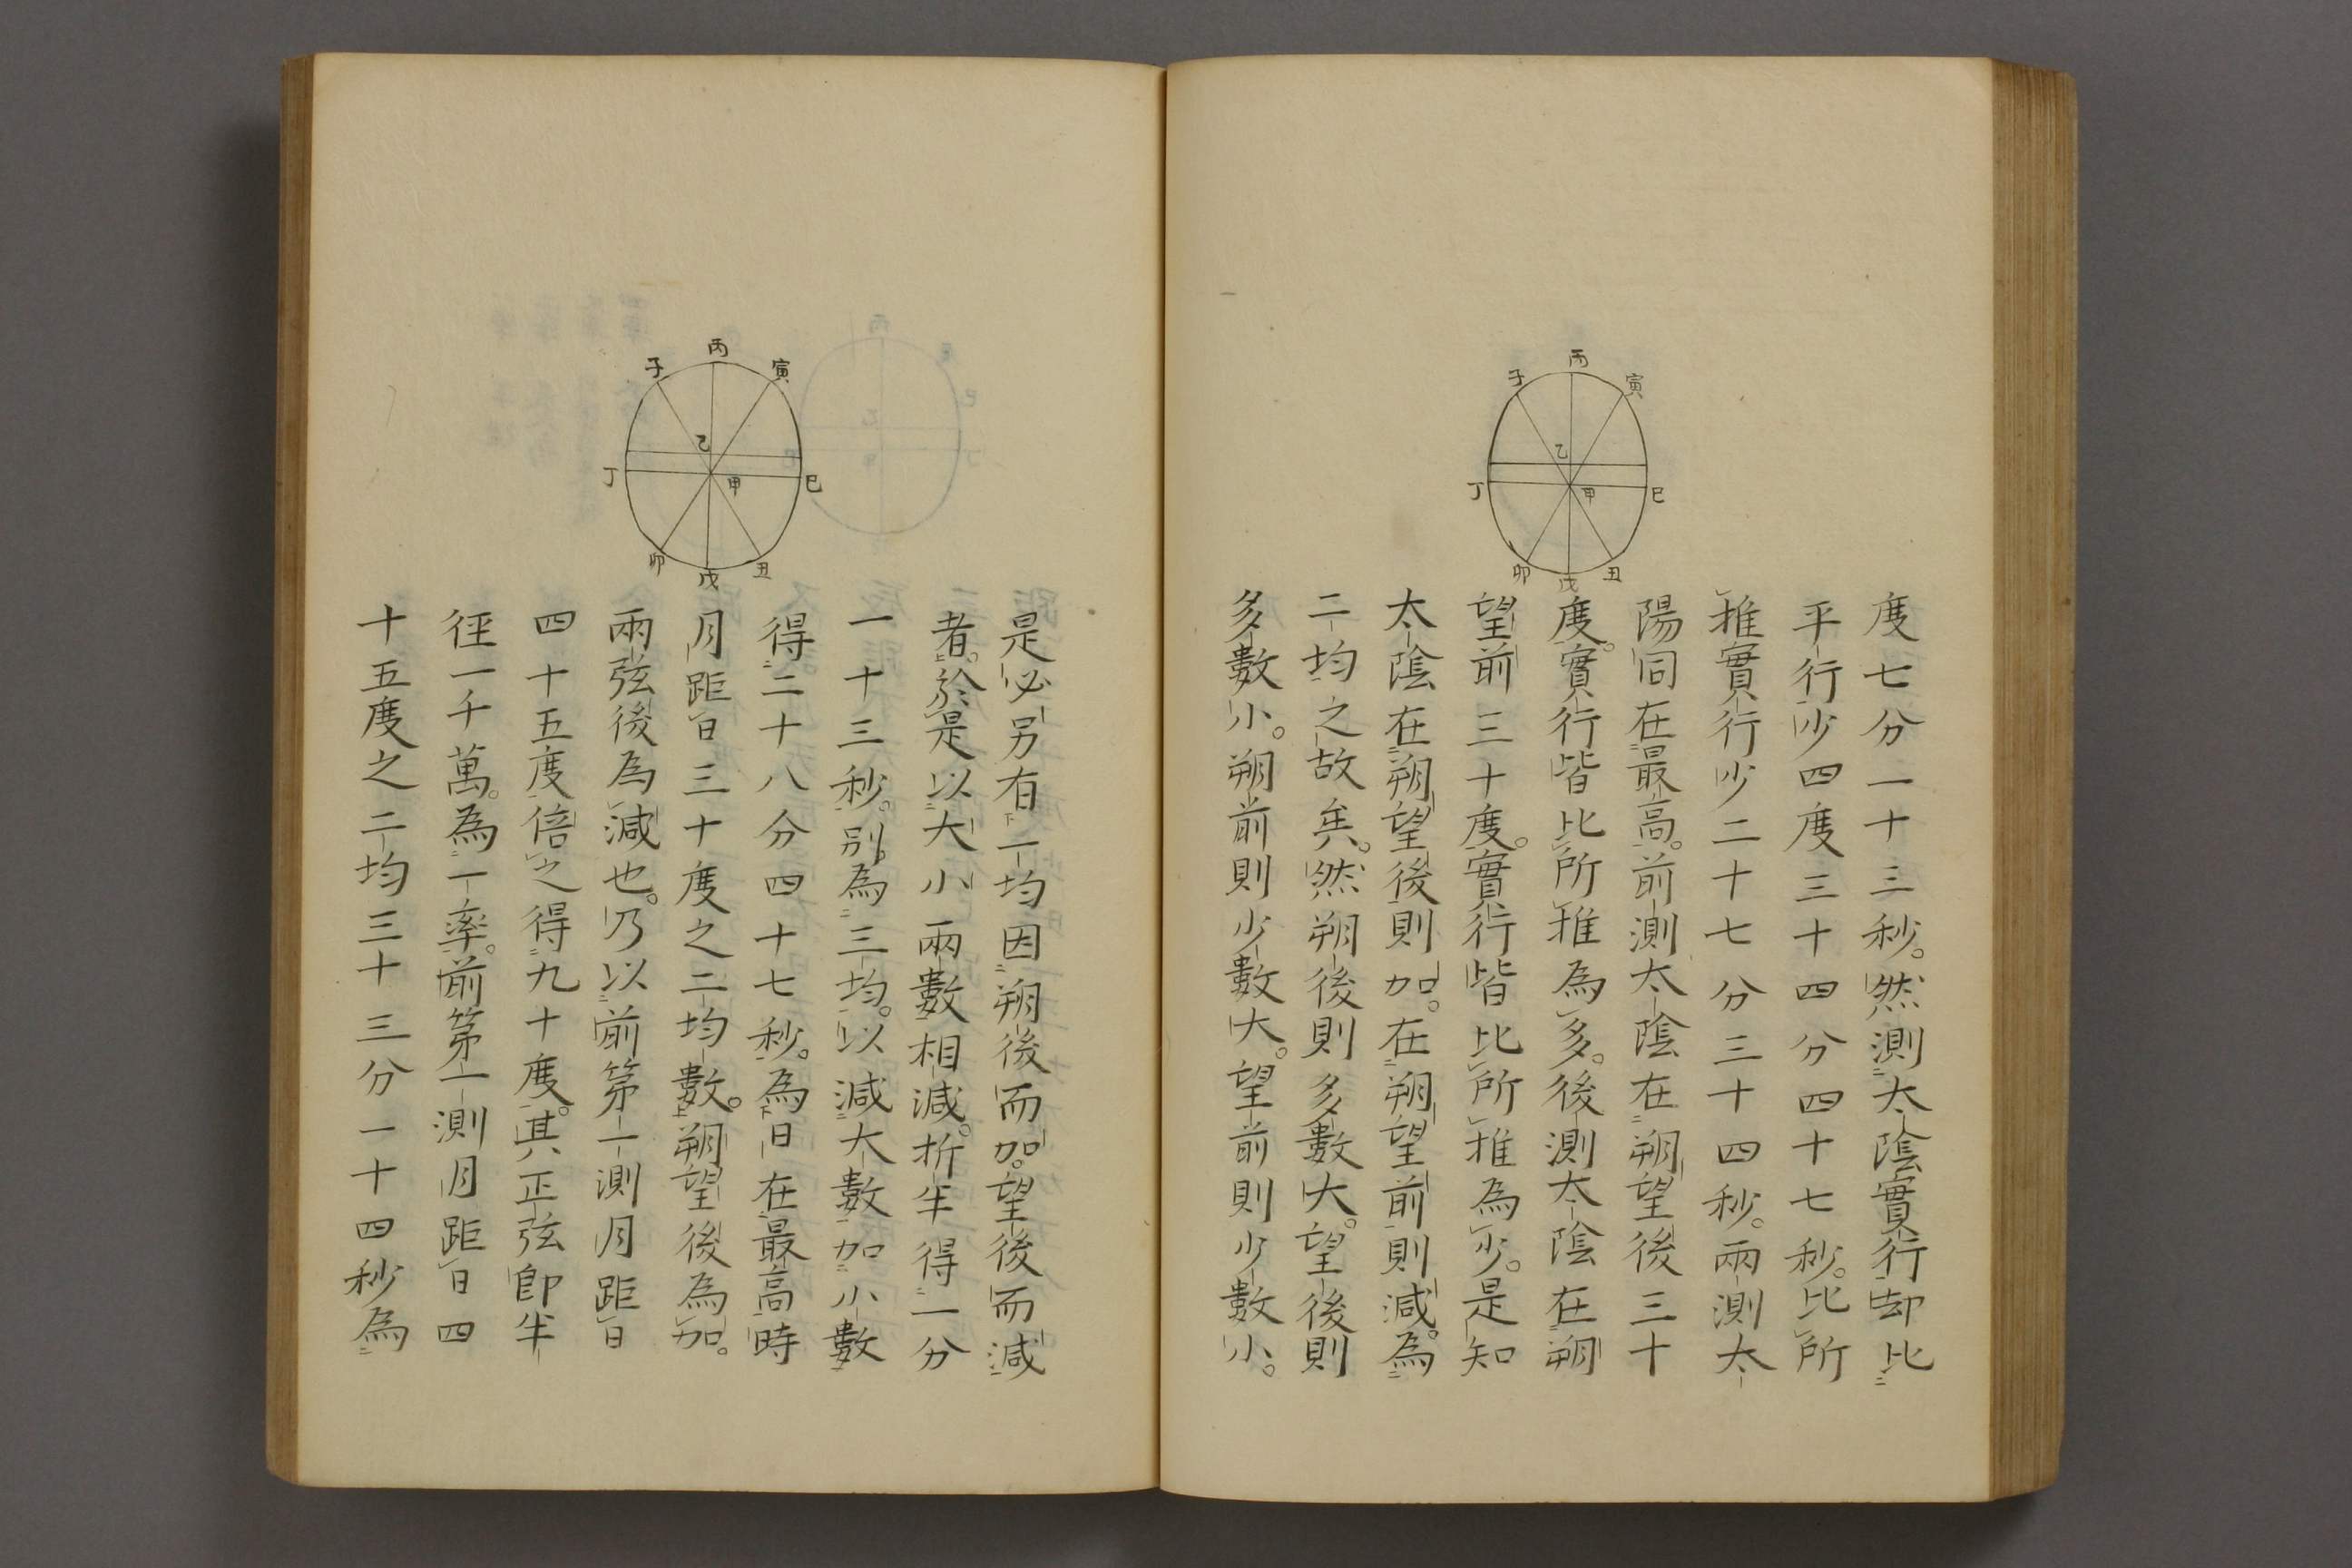 丙
子
寅
乙
丁
甲
巳
卯
戊
丑
度七分一十三秒。然測太陰實行却比
平行少四度三十四分四十七秒。比所
推實行少二十七分三十四秒。兩測太
陽同在最高。前測太陰在朔望後三十
度。實行皆比所推為多。後測太陰在朔
望前三十度。實行皆比所推為少。是知
太陰在朔望後則加。在朔望前則減。為
二均之故矣。然朔後則多數大。望後則
多數小。朔前則少數大。望前則少數小。
丙
子
寅
乙
丁
甲
巳
卯
戊
丑
是必另有一均因朔後而加。望後而減
者。於是以大小兩數相減。折半得一分
一十三秒。別為三均。以減大數加小數
得二十八分四十七秒。為日在最高時
月距日三十度之二均數。朔望後為加。
兩弦後為減也。乃以前第一測月距日
四十五度倍之得九十度。其正弦即半
徑一千萬。為一率。前第一測月距日四
十五度之二均三十三分一十四秒為